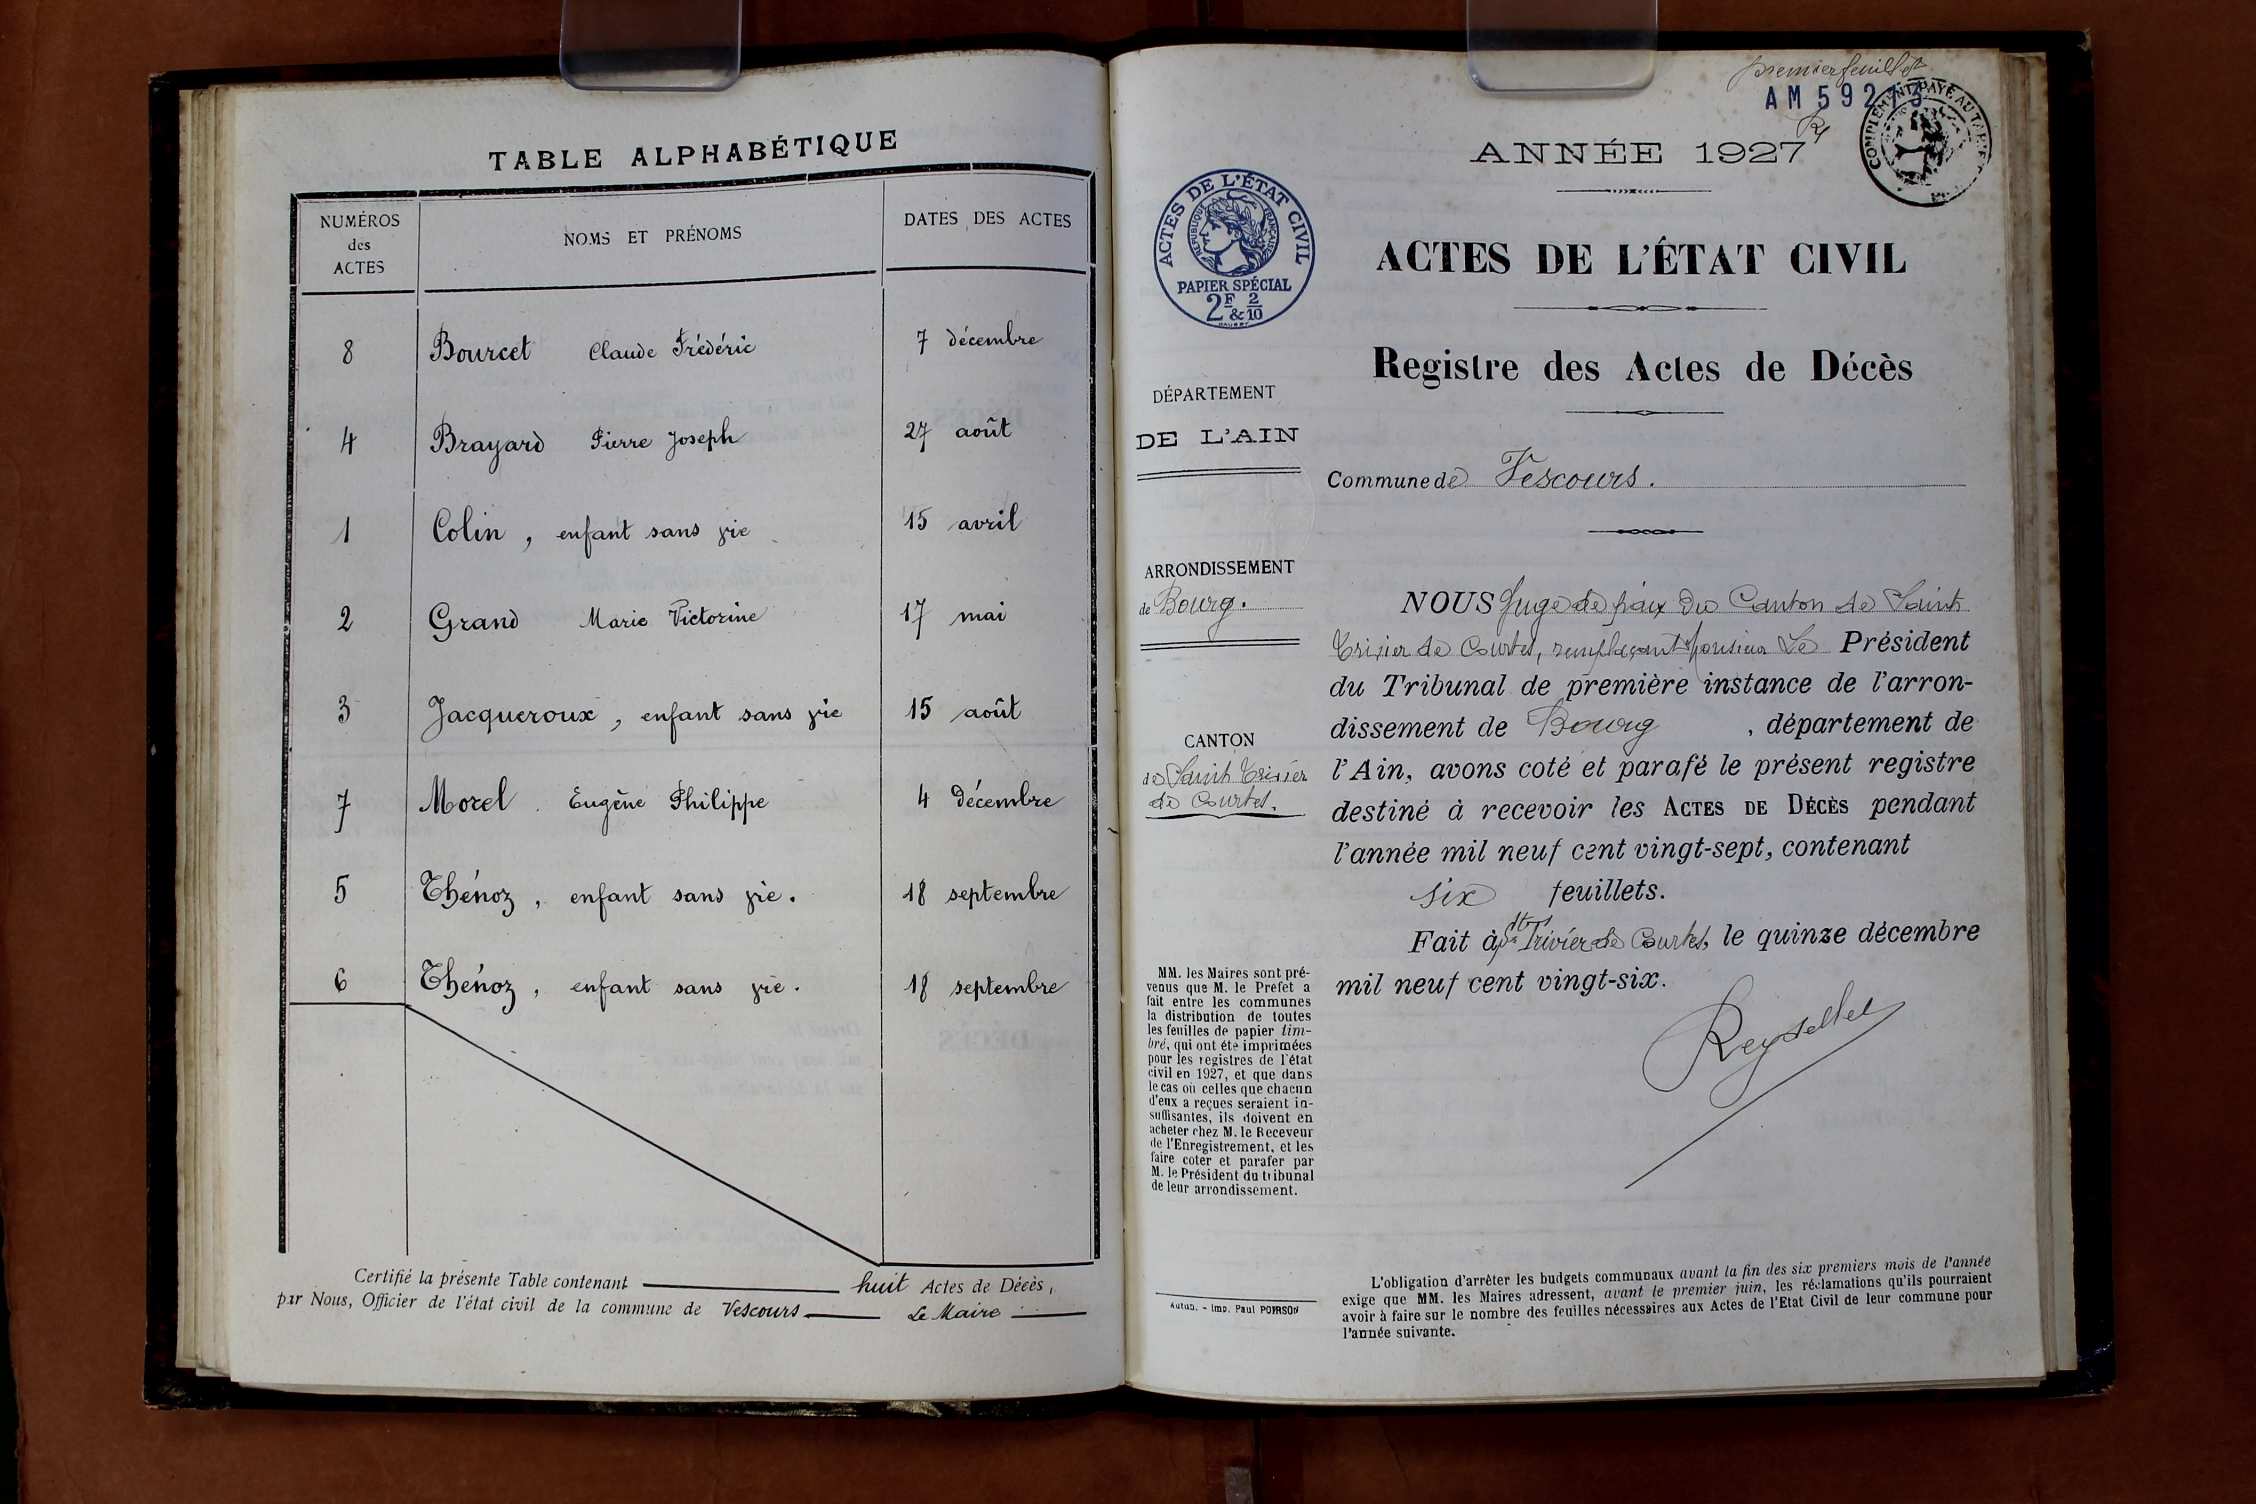 TABLE ALPHABÉTIQUE
NUMÉROS
des
ACTES
NOMS ET PRÉNOMS
DATES DES ACTES
8 Bourcet Claude Frédéric 7 décembre
4 Brayard Pierre Joseph 27 août
1 Colin, enfant sans vie 15 avril
2 Grand Marie Victorine 17 mai
3 Jacqueroux, enfant sans vie 15 août
7 Morel Eugène Philippe 4 décembre
5 Thénoz, enfant sans vie. 18 septembre
6 Thénoz, enfant sans vie. 18 septembre
Certifié la présente Table contenant huit Actes de Décès,
par Nous, Officier de l'état civil de la commune de Vescours Le Maire
premier feuillet
AM 59273
COMPLÉMENT PAYÉ AU
ANNÉE 1927
ACTES DE L'ÉTAT CIVIL
RÉPUBLIQUE FRANÇAISE
PAPIER SPÉCIAL
2F & 2/10
ACTES DE L'ÉTAT CIVIL
Registre des Actes de Décès
DÉPARTEMENT
DE L'AIN
Commune de Vescours.
ARRONDISSEMENT
de Bourg.
CANTON
de Saint Trivier
de Courtes.
NOUS Juge de paix du Canton de Saint
Trivier de Courtes, remplaçant Monsieur Le Président
du Tribunal de première instance de l'arron-
dissement de Bourg, département de
l'Ain, avons coté et parafé le présent registre
destiné à recevoir les ACTES DE DÉCÈS pendant
l'année mil neuf cent vingt-sept, contenant
six feuillets.
Fait à St Trivier de Courtes, le quinze décembre
mil neuf cent vingt-six.
MM. les Maires sont pré-
venus que M. le Préfet a
fait entre les communes
la distribution de toutes
les feuilles de papier tim-
bré, qui ont été imprimées
pour les registres de l'état
civil en 1927, et que dans
le cas où celles que chacun
d'eux a reçues seraient in-
suffisantes, ils doivent en
acheter chez M. le Receveur
de l'Enregistrement, et les
faire coter et parafer par
M. le Président du tribunal
de leur arrondissement.
Autun. - Imp. Paul POIRSON
L'obligation d'arrêter les budgets communaux avant la fin des six premiers mois de l'année
exige que MM. les Maires adressent, avant le premier juin, les réclamations qu'ils pourraient
avoir à faire sur le nombre des feuilles nécessaires aux Actes de l'Etat Civil de leur commune pour
l'année suivante.